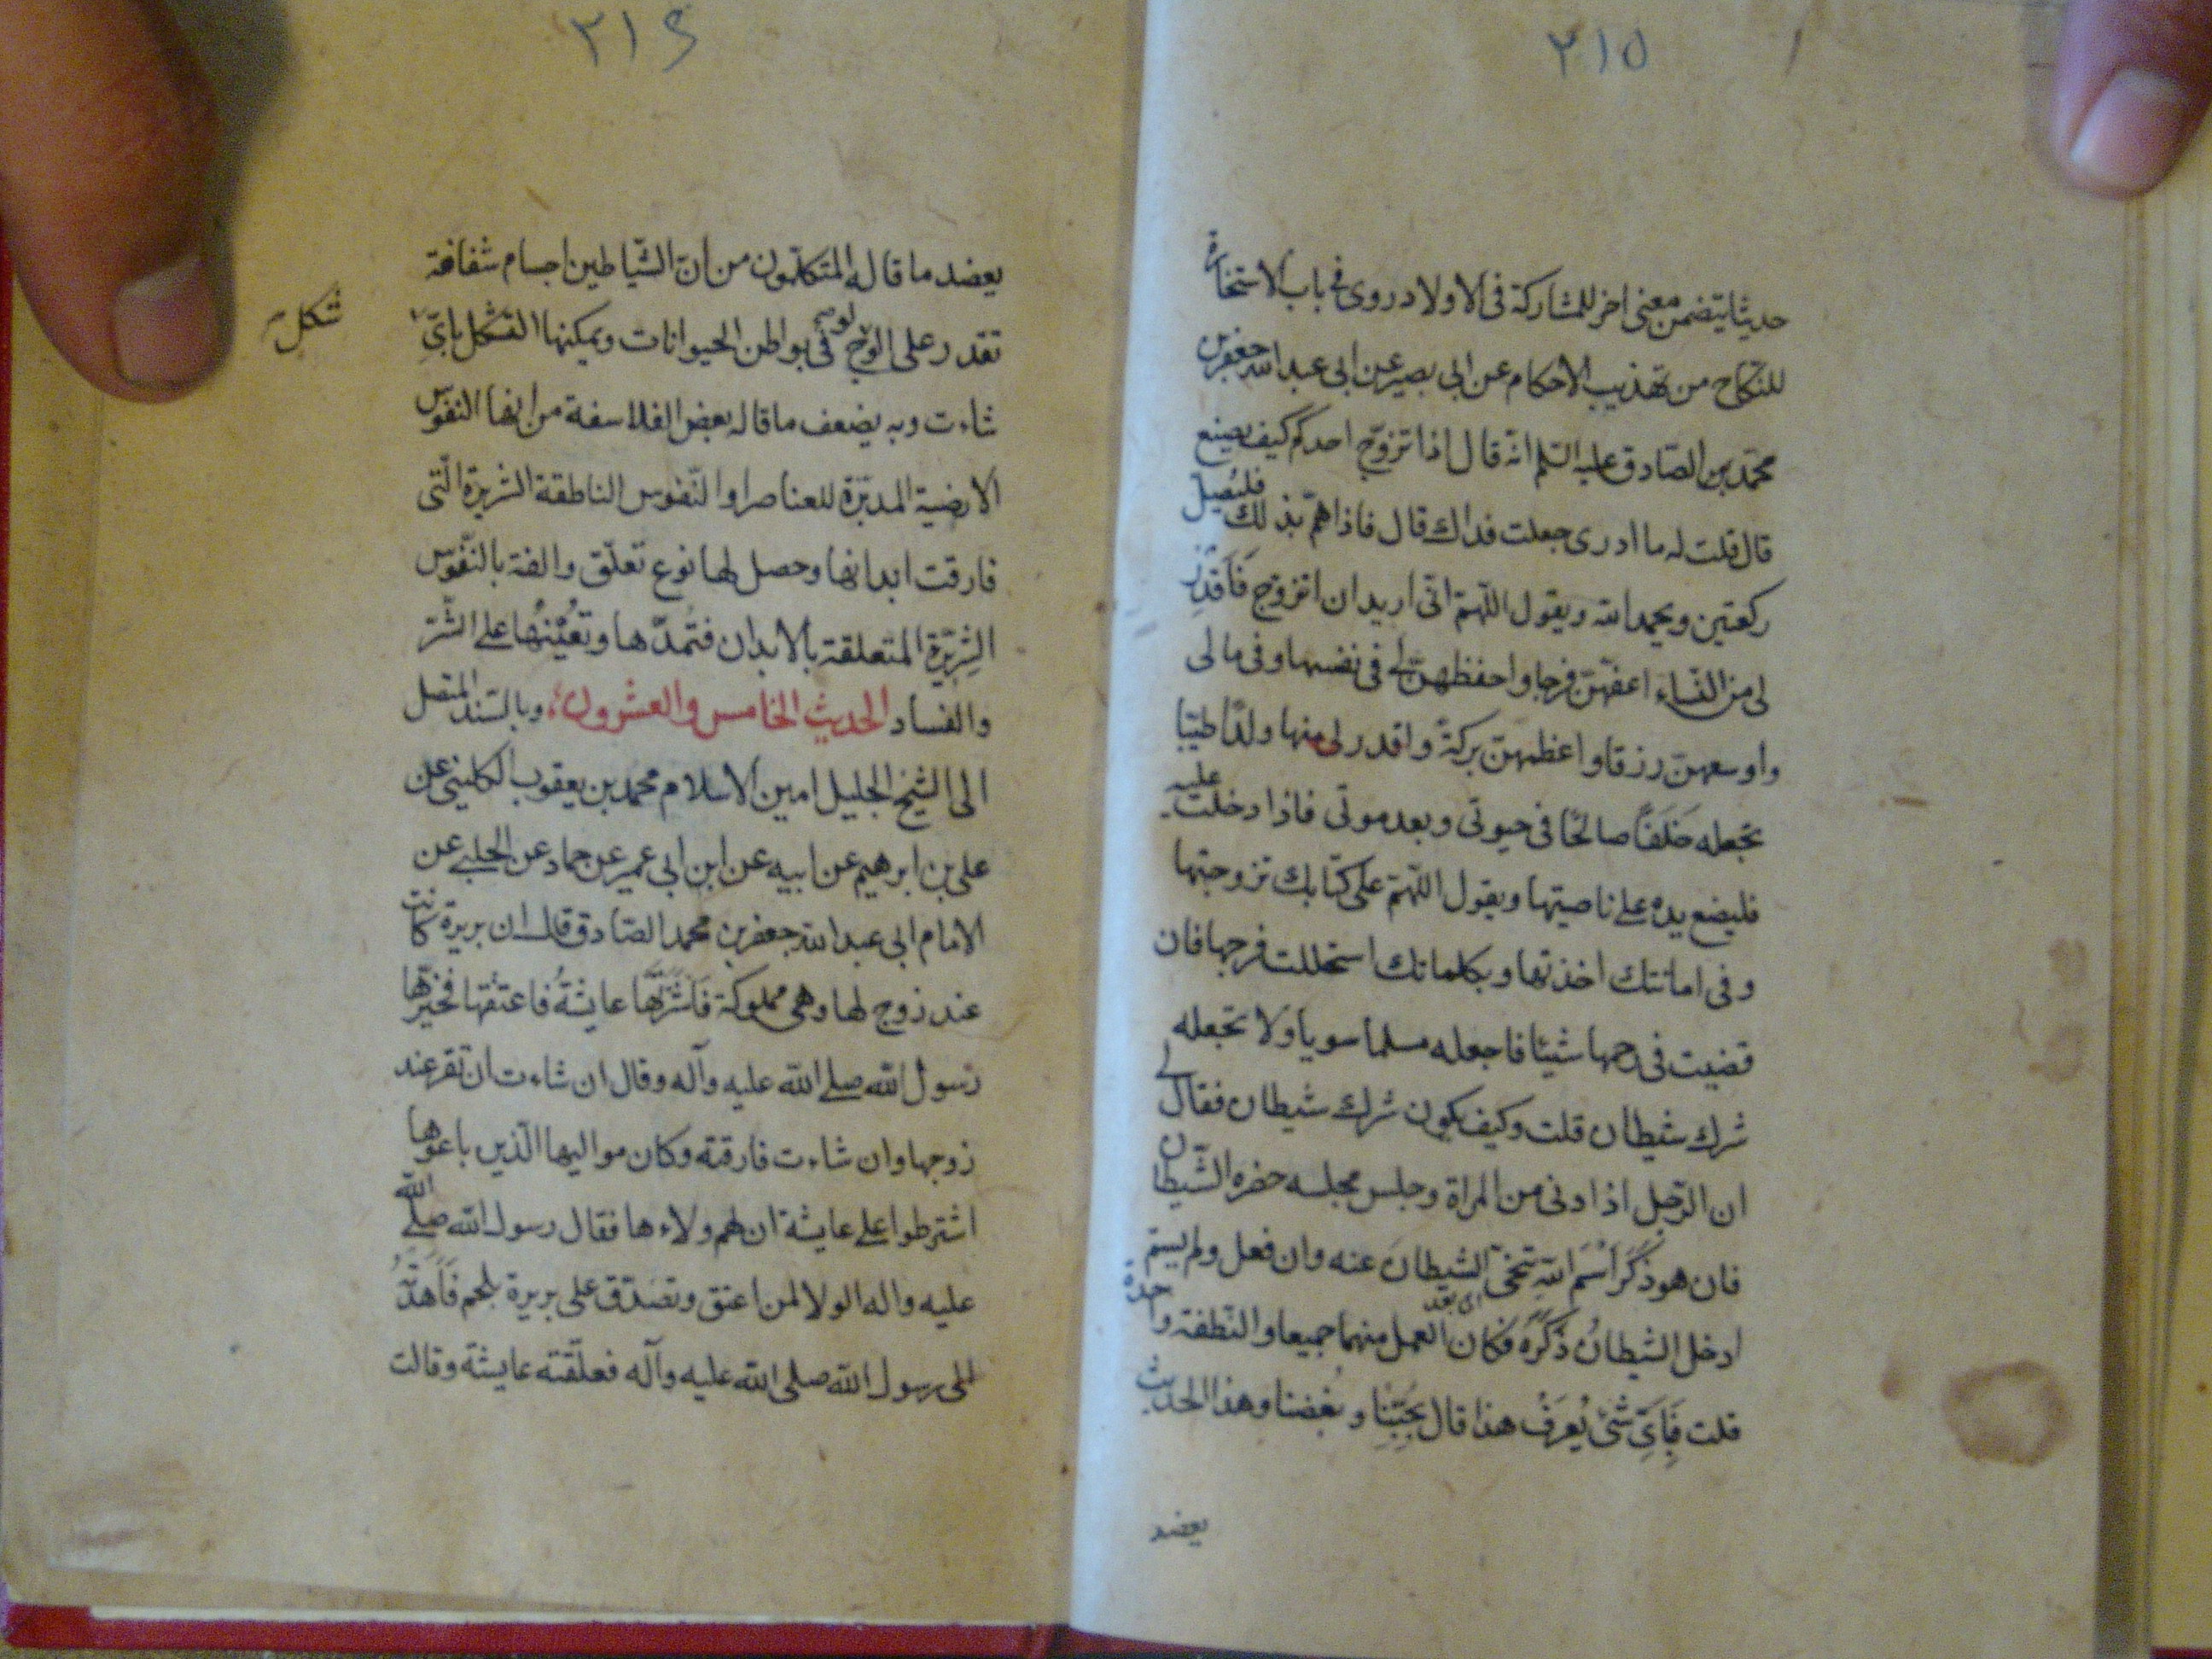 ٢١٥
حديثا يتضمن معنى اخر للمشاركة فى الاولاد روى فى باب الاستخارة
للنكاح من تهذيب الاحكام عن ابى بصير عن ابى عبد الله جعفر بن
محمد بن الصادق عليه السلم انه قال اذا تزوج احدكم كيف يصنع
قال قلت له ما ادرى جعلت فداك قال فاذا هم بذلك فليصل
ركعتين ويحمد الله ويقول اللهم انى اريد ان اتزوج فاقدر
لى من النساء اعفهن فرجا واحفظهن لى فى نفسها وفى مالى
واوسعهن رزقا واعظمهن بركة واقدر لى منها ولدا طيبا
تجعله خلفا صالحا فى حيوتى وبعد موتى فاذا دخلت عليه
فليضع يده على ناصيتها ويقول اللهم على كتابك تزوجتها
وفى امانتك اخذتها وبكلماتك استحللت فرجها فان
قضيت فى رحمها شيئا فاجعله مسلما سويا ولا تجعله
شرك شيطان قلت وكيف يكون شرك شيطان فقال لى
ان الرجل اذا دنى من المراة وجلس مجلسه حضره الشيطان
فان هو ذَكَرَ اسْمَ الله تنحى الشيطان عنه وان فعل ولم يسم
ادخل الشيطانُ ذَكَرَهُ فكان العمل منهما جميعا والنطفة واحدة
قلت فَبِاَىِّ شئ يُعرَفُ هذا قال بحُبِّنا وبُغضنا وهذا الحديث
يعضد
٢١٦
يعضد ما قاله المتكلمون من ان الشياطين اجسام شفافة
تقدر على الولوج فى بواطن الحيوانات ويمكنها التشكل باى
شكل
شاءت وبه يضعف ما قاله بعض الفلاسفة من انها النفوس
الارضية المدبرة للعناصر او النفوس الناطقة الشريرة التى
فارقت ابدانها وحصل لها نوع تعلق والفة بالنفوس
الشِرِّيرة المتعلقة بالابدان فتُمدّها وتعُيْنُها على الشّر
والفساد الحديث الخامس والعشرون وبالسند المتصل
الى الشيخ الجليل امين الاسلام محمد بن يعقوب الكلينى عن
على بن ابرهيم عن ابيه عن ابن ابى عمير عن حماد عن الحلبى عن
الامام ابى عبد الله جعفر بن محمد الصادق قال ان بريرة كانت
عند زوج لها وهى مملوكة فاشْتَرَتْها عايشةُ فاعتقتها فخيّرها
رسول الله صلى الله عليه وآله وقال ان شاءت ان تقر عند
زوجها وان شاءت فارقته وكان مواليها الذين باعوها
اشترطوا على عايشة ان لهم ولاءها فقال رسول الله صلى الله
عليه واله الولا لمن اعتق وتصدق على بريرة بلحم فَاَهْدَتْهُ
الى رسول الله صلى الله عليه وآله فعلّقته عايشة وقالت